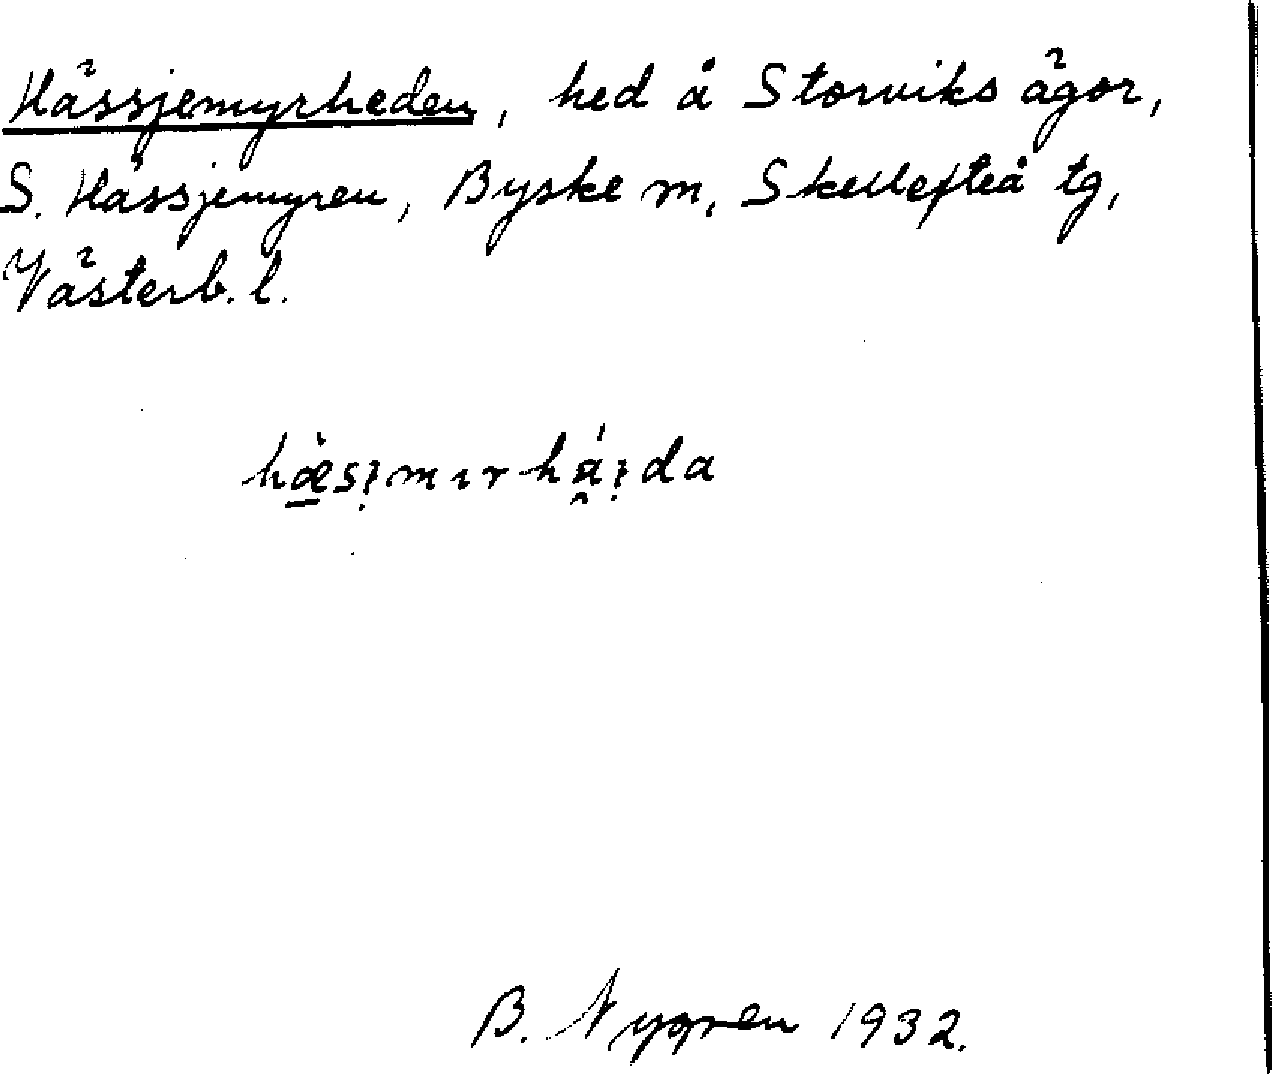 Hässjemyrheden, hed å Storviks ägor,
S. Hässjemyren, Byske m, Skellefteå tg,
Västerb. l.
B. Nygren 1932.